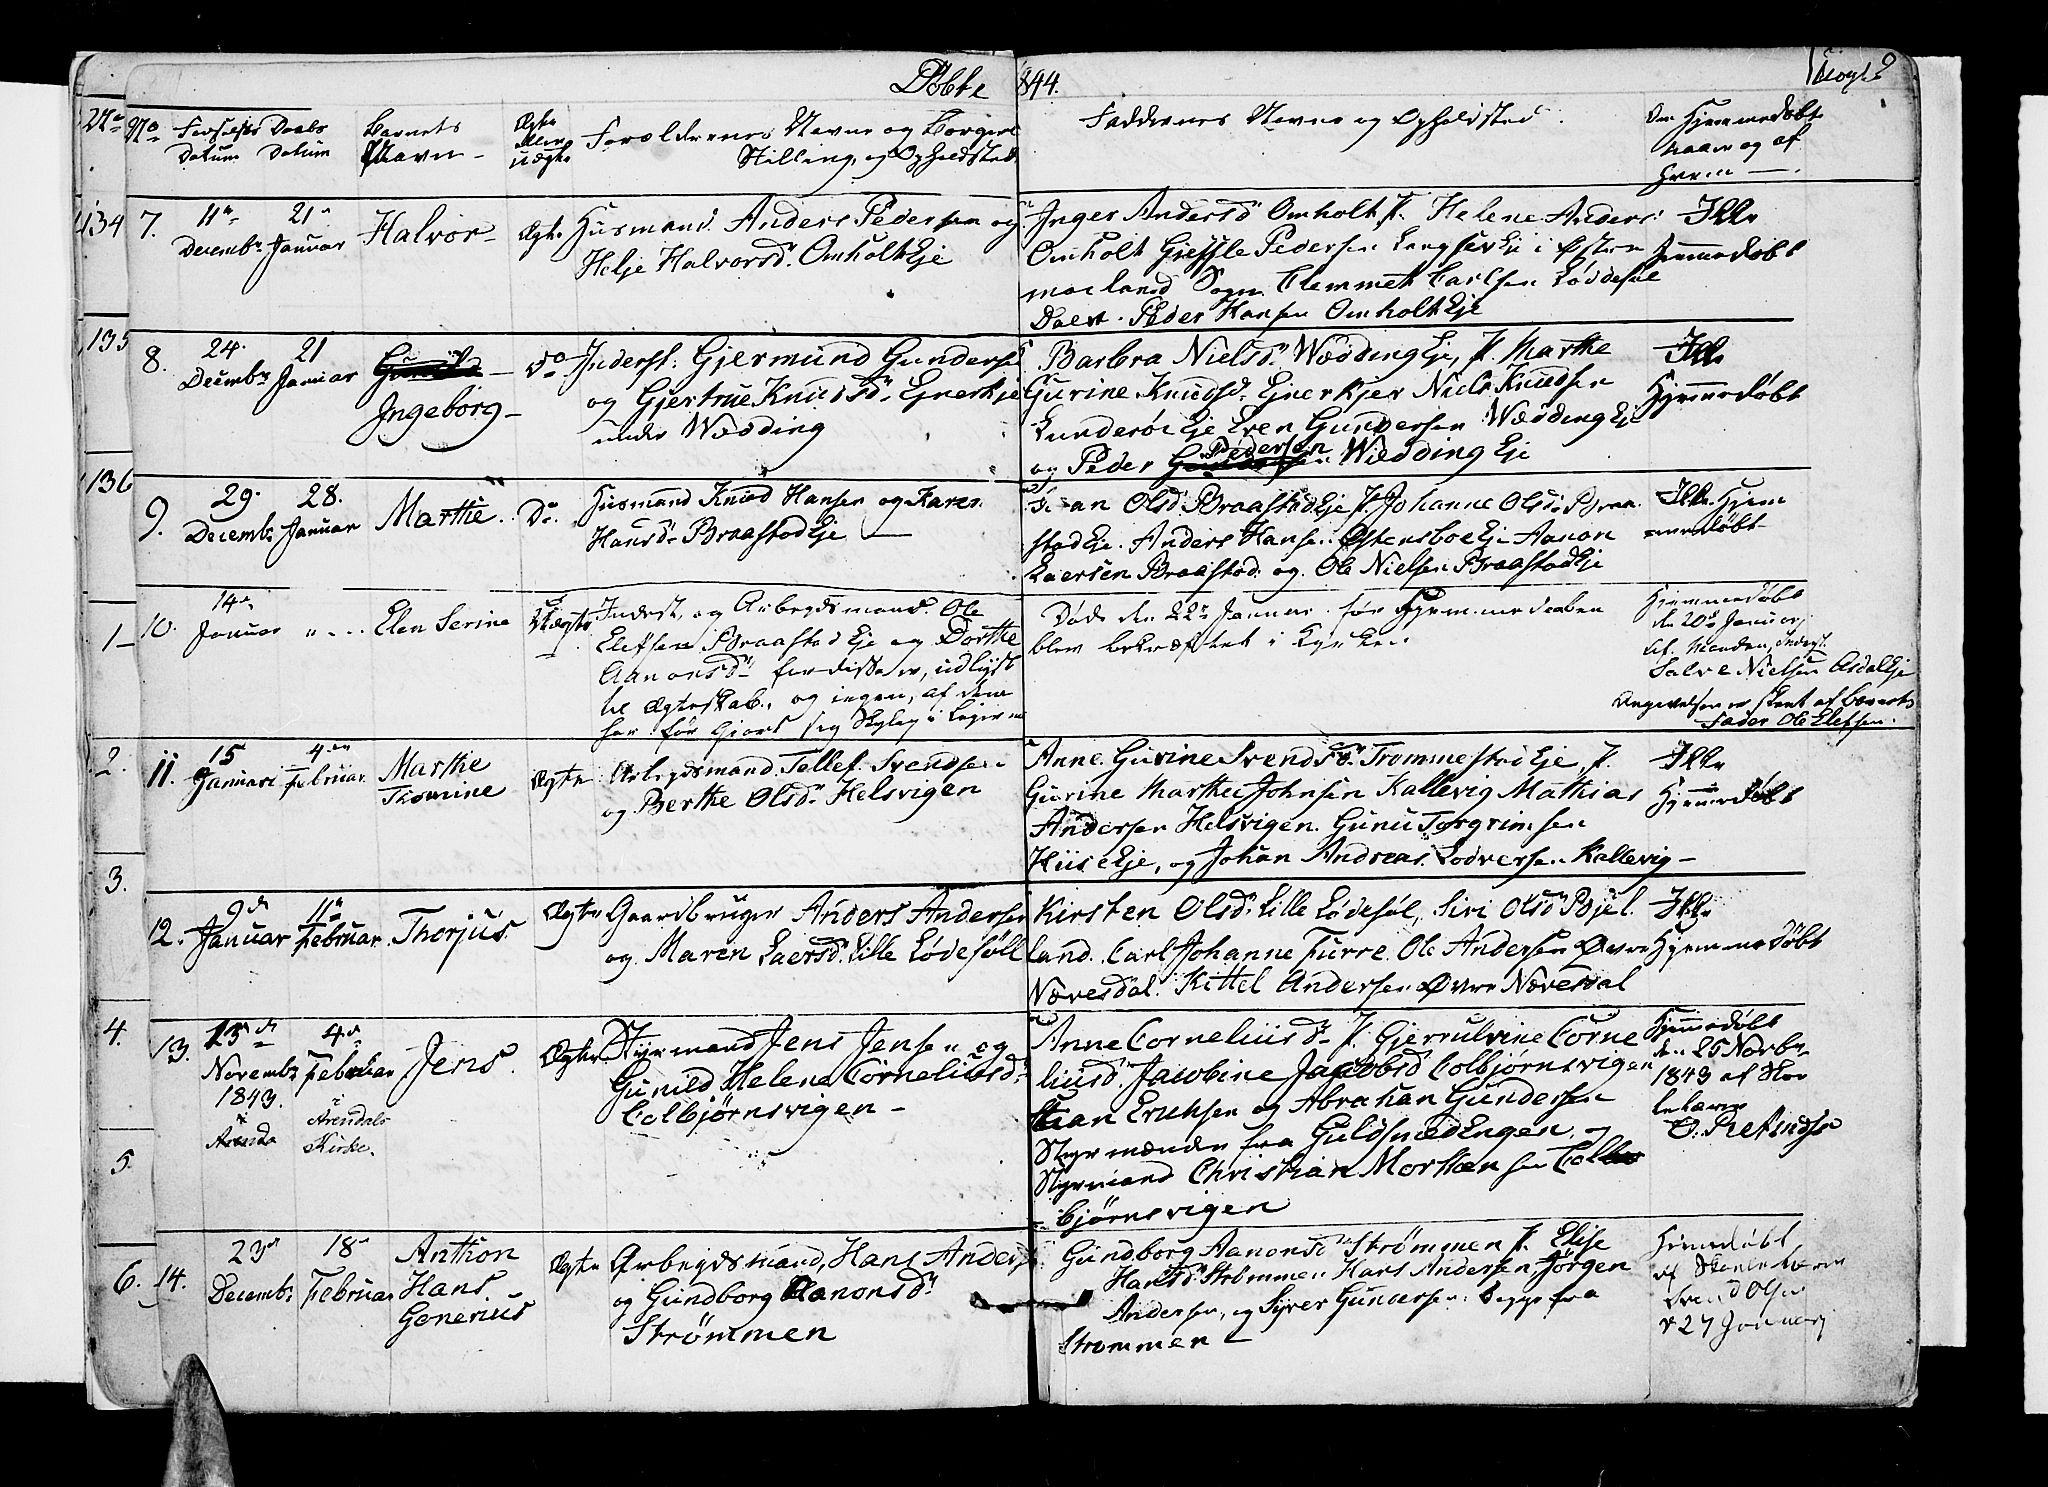 Döbte 1844.
No No Fødsels Datum Daabs Datum Barnets Navn Ægte eller uægte Forældrenes Navne og Borgerl. Stilling, og Opholdsted
Faddernes Navne og Opholdsted.
Hjemmedøbt naar og af hvem
134 7. 11te Decembr 21de Januar Halvor Ægte Husmand Anders Pedersen og
Helje Halvorsd. Omholt Eje
Inger Andersd Omholt Helene Anders:
Omholt Pedersen Eje i Østre
moeland Sogn Clemmet Carlsen Løddesøl
Peder Hansen Omholt Eje
Ikke
hjemmedøbt
135 8. 24. Decembr 21 Januar Gunild Ingeborg Do Inderst: Gjermund Gundersen
og Gjertrue Knudsd. Ejnerkjer
under Wædding
Barbra Nielsd. Wædding Eje, Marthe
Gurine Knudsd. Ejnerkjer Niels Knudsen
Eje Even Gundersen Wædding Eje
og Peder Pedersen Wædding Eje
Ikke
Hjemmedøbt
136 9. 29. Decembr 28. Januar Marthe. Do. Husmand Knud Hansen og Karen
Hansd. Braastad Eje
Olsd. Braastad Eje Johanne Olsd. Braa
stad Eje. Anders Hansen Østensboe Eje Aanon
Laersen Braastad og Ole Nielsen Braastad Eje
Ikke Hjem
medøbt
1 10. 14de Januar " Elen Serine Uægte
Inderst og Arbejdsmand Ole
Elefsen Braastad Eje og Dorthe
Aanonsd. for disse er udlyst
til Ægteskab, og ingen af dem
har før gjort sig skyldig i Lejerm
Døde den 22de Januar før Hjemmedaaben
blev bekræftet i Kirken
Hjemmedøbt
den 20de Januar
Salve Nielsen Asdal Eje
Angivelsen er skeet af Barnets
Fader Ole Elefsen.
2. 11. 15 Januari 4den Februar Marthe Thomine Ægte Arbejdsmand Tellef Svendsen
og Berthe Olsd. Helsvigen
Anne Gurine Svendsd. Trommestad Eje,
Gurine Marthe Johnsen Kallevig Mathias
Andersen Helsvigen. Gunu Torgrimsen
Hiis Eje, og Johan Andreas Lodversen Kallevig
Ikke
Hjemmedøbt
3. 12. 9de Januar 11te Februar Thorjus Ægte Gaardbruger Anders Andersen
og Maren Laersd. Lille Lødesøll
Kirsten Olsd. Lille Lødesøl, Siri Olsd Bjel
land. Carl Johanne Furre. Ole Andersen Øvre
Næresdal. Kittel Andersen Øvre Næresdal
Ikke
Hjemmedøbt
4. 13. 13de Novembr 1843. i Arendal 4de Februar i Arendals Kirke. Jens. Ægte Styrmand Jens Jensen og
Gunild Helene Corneliusd.
Colbjørnsvigen
Anne Corneliusd. Gjerrulvine Corne
liusd. Jacobine Jacobsd Colbjørnsvigen
Erichsen og Abraham Gundersen
Styrmænder fra Guldsmedengen, og
Styrmand Christian Mortensen Col
bjørnsvigen
Hjemmedøbt
den 25 Novbr
1843 af Sko
lelærer
5.
6. 14. 23de Decembr 18de Februar Anthon Hans Generius Ægte Arbejdsmand, Hans Anders
og Gundborg Aanonsd.
Strømmen
Gundborg Aanonsd. Strømmen Elise
Hansd. Strømmen Hans Andersen, Jörgen
Andersen, og Syver Gundersen begge fra
Strömmen
Hjemmedøbt
af Skolelærer
Svend Olsen
d 27 January